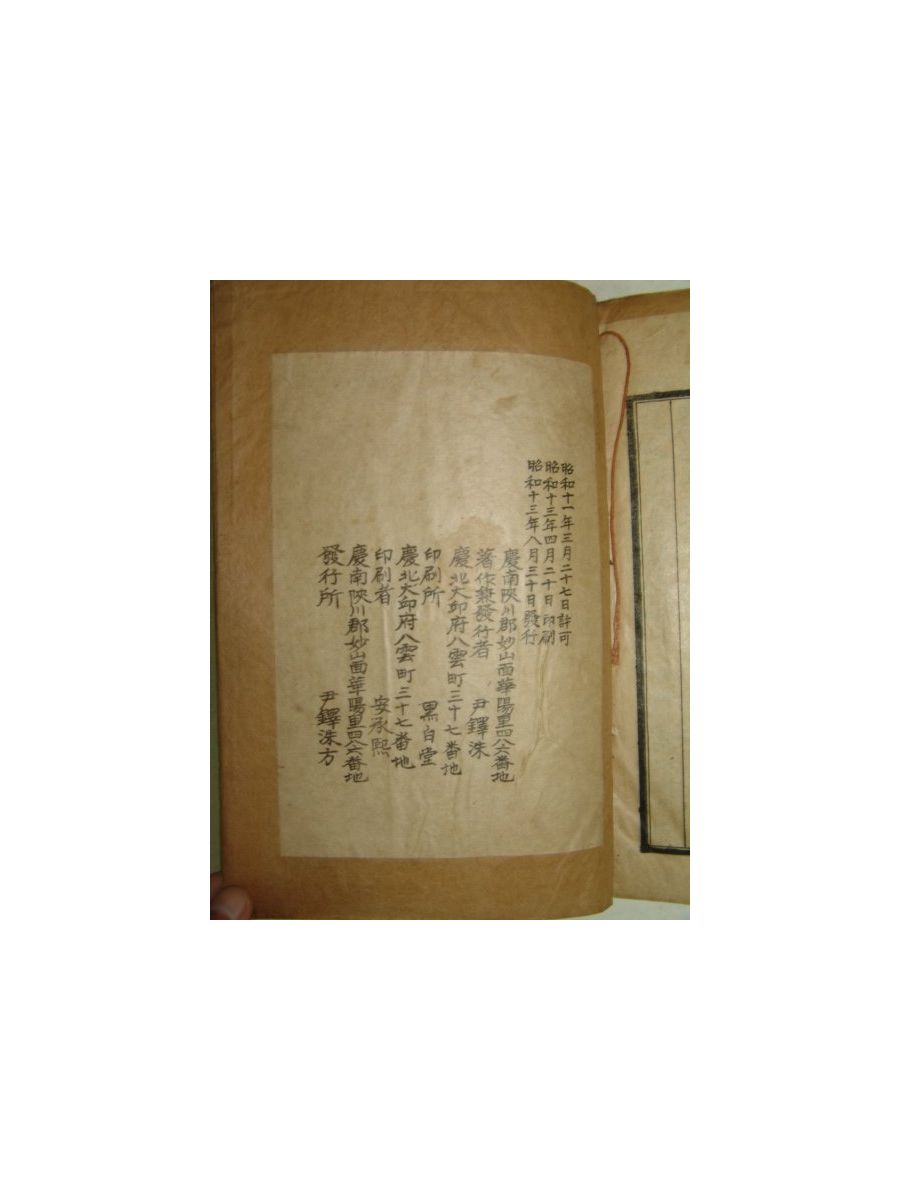 昭和十一年三月二十七日許可
昭和十三年四月二十日印刷
昭和十三年八月三十日發行
慶南陜川郡妙山面華陽里四八六番地
著作兼發行者 尹鐸洙
慶北大邱府八雲町三十七番地
印刷所 黑白堂
慶北大邱府八雲町三十七番地
印刷者 安承熙
慶南陜川郡妙山面華陽里四八六番地
發行所 尹鐸洙方